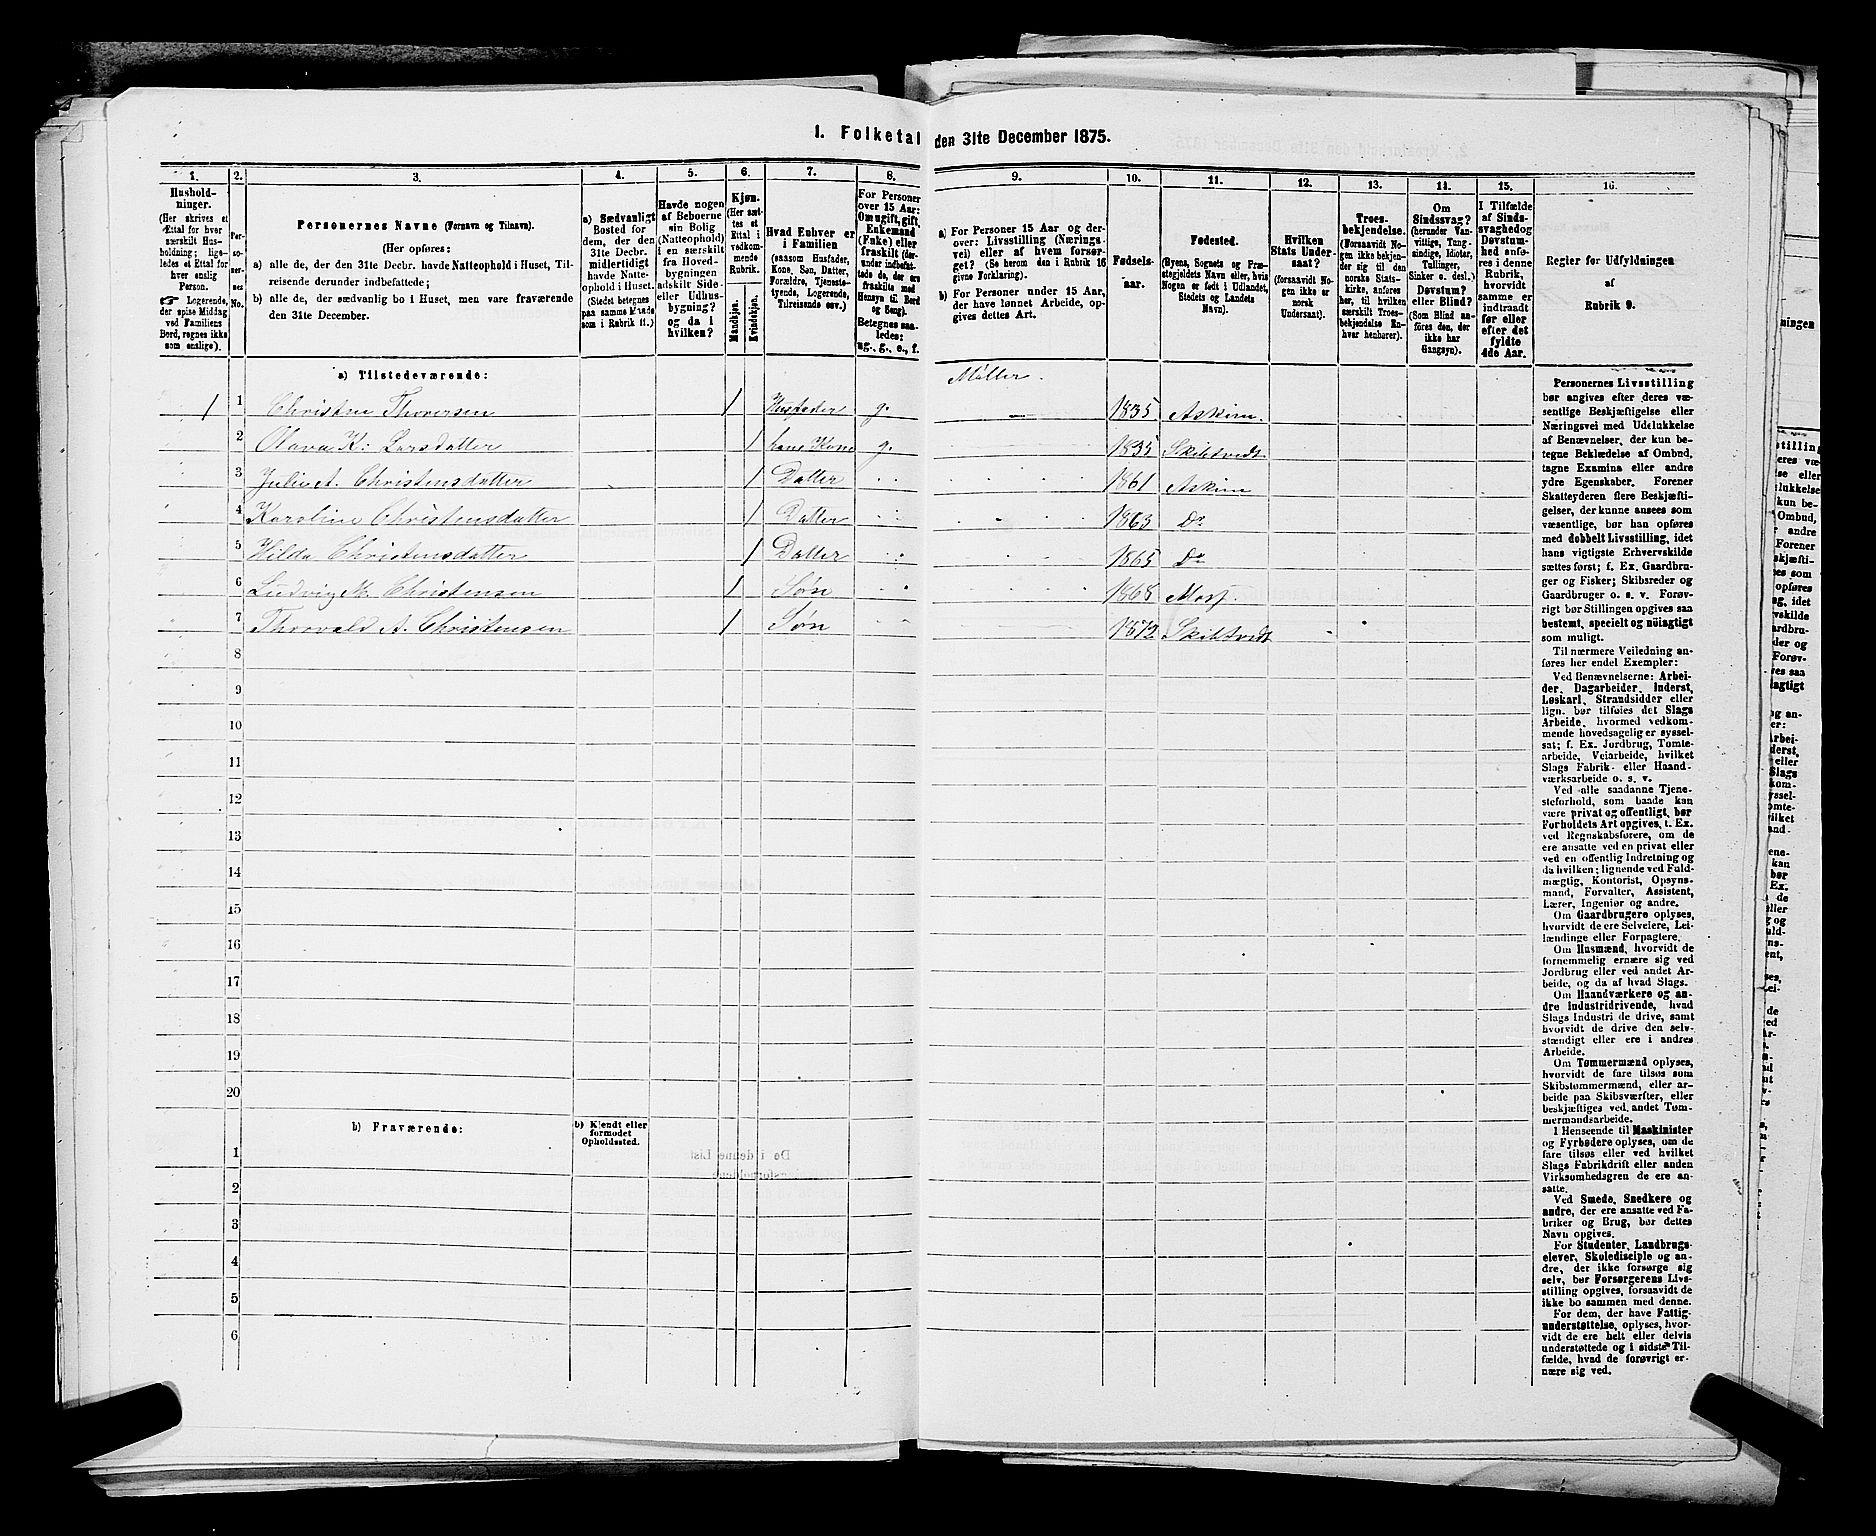 1. Folketal den 31te December 1875.
1. 2. 3. 4. 5. 6. 7. 8. 9. 10. 11. 12. 13. 14. 15. 16.
Hushold-
ninger.
(Her skrives et
Ettal for hver
særskilt Hus-
holdning; lige-
ledes et Ettal for
hver enslig
Person.
☞ Logerende,
der spise Middag
ved Familiens
Bord, regnes ikke
som enslige).
Per-
so-
ner-
nes
No.
Personernes Navne (Fornavn og Tilnavn).
(Her opføres:
a) alle de, der den 31te Decbr. havde Natteophold i Huset, Til-
reisende derunder indbefattede;
b) alle de, der sædvanlig bo i Huset, men vare fraværende
den 31te December.
a) Sædvanligt
Bosted for
dem, der den
31te Decbr.
midlertidigt
havde Natte-
ophold i Huset.
(Stedet betegnes
paa samme Maade
som i Rubrik 11.)
Havde nogen
af Beboerne
sin Bolig
(Natteophold)
i en særskilt
fra Hoved-
bygningen
adskilt Side-
eller Udhus-
bygning?
og da i
hvilken?
Kjøn.
(Her sæt-
tes et
Ettal i
vedkom-
mende
Rubrik.
Mandkjøn.
Kvindekjøn.
Hvad Enhver er
i Familien
(saasom Husfader,
Kone, Søn, Datter,
Forældre, Tjeneste-
tyende, Logerende,
Tilreisende osv.)
For Personer
over 15 Aar:
Om ugift, gift,
Enkemand
(Enke) eller
fraskilt (her-
under indbefat-
tede de, der ere
fraskilte med
Hensyn til Bord
og Seng).
Betegnes saa-
ledes:
ug., g., e., f.
a) For Personer 15 Aar og der-
over: Livsstilling (Nærings-
vei) eller af hvem forsør-
get? (Se herom den i Rubrik 16
givne Forklaring).
b) For Personer under 15 Aar,
der have lønnet Arbeide, op-
gives dettes Art.
Fødsels-
aar.
Fødested.
(Byens, Sognets og Præ-
stegjeldets Navn eller, hvis
Nogen er født i Udlandet,
Stedets og Landets
Navn).
Hvilken
Stats Under-
saat?
(forsaavidt No-
gen ikke er
norsk
Undersaat).
Troes-
bekjendelse.
(Forsaavidt No-
gen ikke bekjen-
der sig til den
norske Stats-
kirke, anføres
her, til hvilken
særskilt Troes-
bekjendelse En-
hver henhører).
Om
Sindssvag?
(herunder Van-
vittige, Tung-
sindige, Idioter,
Tullinger,
Sinker o. desl.)
Døvstum?
eller Blind?
(Som Blind an-
føres den, der
ikke har
Gangsyn).
I Tilfælde
af Sinds-
svaghed og
Døvstum-
hed anfø-
res i denne
Rubrik,
hvorvidt
samme er
indtraadt
før eller
efter det
fyldte
4de Aar.
Regler for Udfyldningen
af
Rubrik 9.
a) Tilstedeværende:
Møller.
1 1 Christen Thoresen 1 Husfader g. 1835 Askim
2 Olava K: Larsdatter 1 hans Kone g. 1835 Skibtvedt
3 Julie A. Christensdatter 1 Datter 1861 Askim
4 Karoline Christensdatter 1 Datter 1863 Do
5 Hilda Christensdatter 1 Datter 1865 Do
6 Ludvig M. Christensen 1 Søn 1868 Moss
7 Thorvald A. Christensen 1 Søn 1872 Skibtvedt
8
9
10
11
12
13
14
15
16
17
18
19
20
b) Fraværende:
b) Kjendt eller
formodet
Opholdssted.
1
2
3
4
5
6
Personernes Livsstilling
bør angives efter deres væ-
sentlige Beskjæftigelse eller
Næringsvei med Udelukkelse
af Benævnelser, der kun be-
tegne Beklædelse af Ombud,
tagne Examina eller andre
ydre Egenskaber. Forener
Skatteyderen flere Beskjæfti-
gelser, der kunne ansees som
væsentlige, bør han opføres
med dobbelt Livsstilling, idet
hans vigtigste Erhvervskilde
sættes først; f. Ex. Gaardbru-
ger og Fisker; Skibsreder og
Gaardbruger o. s. v. Forøv-
rigt bør Stillingen opgives saa
bestemt, specielt og nöiagtigt
som muligt.
Til nærmere Veiledning an-
føres her endel Exempler:
Ved Benævnelserne: Arbei-
der, Dagarbeider, Inderst,
Løskarl, Strandsidder eller
lign. bør tilføies det Slags
Arbeide, hvormed vedkom-
mende hovedsagelig er syssel-
sat; f. Ex. Jordbrug, Tomte-
arbeide, Veiarbeide, hvilket
Slags Fabrik- eller Haand-
værksarbeide o. s. v.
Ved alle saadanne Tjene-
steforhold, som baade kan
være privat og offentligt, bør
Forholdets Art opgives, t. Ex.
ved Regnskabsførere, om de
ere ansatte ved en privat eller
ved en offentlig Indretning og
da hvilken; lignende ved Fuld-
mægtig, Kontorist, Opsyns-
mand, Forvalter, Assistent,
Lærer, Ingeniør og andre.
Om Gaardbrugere oplyses,
hvorvidt de ere Selveiere, Lei-
lændinge eller Forpagtere.
Om Husmænd, hvorvidt de
fornemmelig ernære sig ved
Jordbrug eller ved andet Ar-
beide, og da af hvad Slags.
Om Haandværkere og an-
dre Industridrivende, hvad
Slags Industri de drive, samt
hvorvidt de drive den selv-
stændigt eller ere i andres
Arbeide.
Om Tømmermænd oplyses,
hvorvidt de fare tilsøs som
Skibstømmermænd, eller ar-
beide paa Skibsværfter, eller
beskjæftiges ved andet Tøm-
mermandsarbeide.
I Henseende til Maskinister
og Fyrbødere oplyses, om de
fare tilsøs eller ved hvilket
Slags Fabrikdrift eller anden
Virksomhedsgren de ere an-
satte.
Ved Smede, Snedkere og
andre, der ere ansatte ved Fa-
briker og Brug, bør dettes
Navn opgives.
For Studenter, Landbrugs-
elever, Skoledisciple og an-
dre, der ikke forsørge sig
selv, bør Forsørgerens Livs-
stilling opgives, forsaavidt de
ikke bo sammen med denne.
For dem, der have Fattig-
understøttelse, oplyses, hvor-
vidt de ere helt eller delvis
understøttede og i sidste Til-
fælde, hvad de forøvrigt er-
nære sig ved.